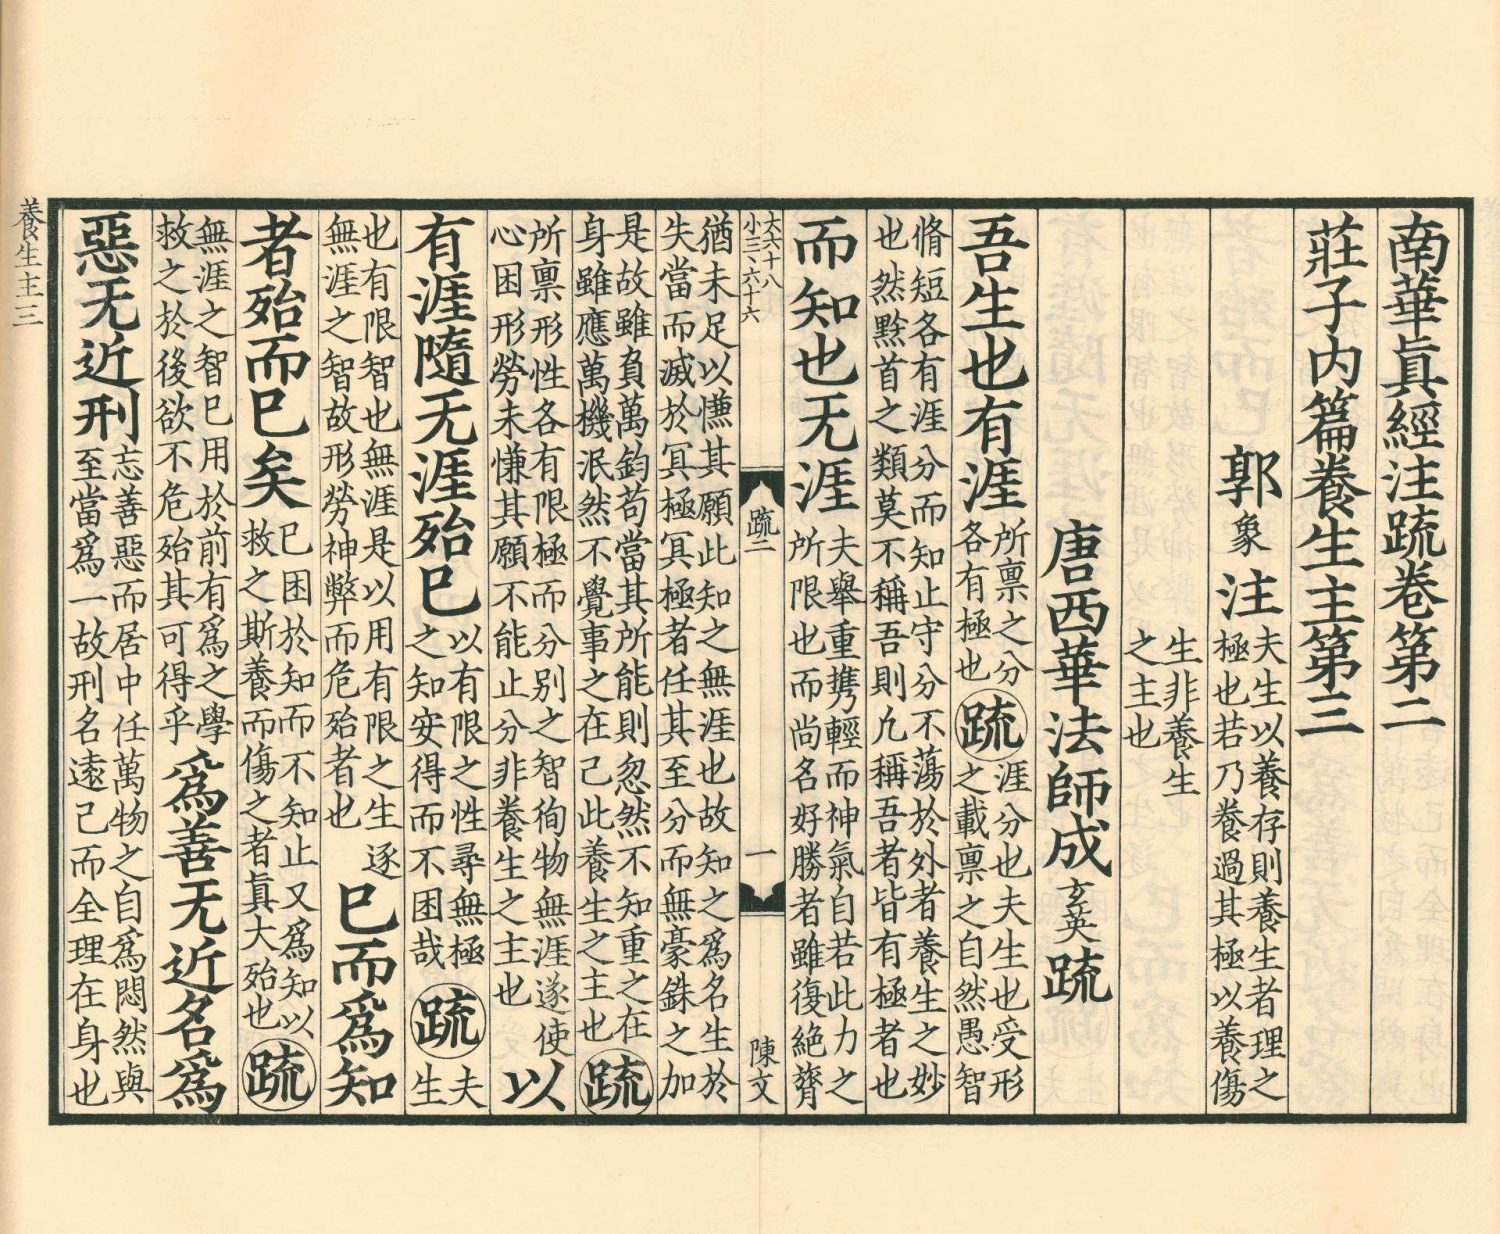 南華眞經注疏卷第二
莊子内篇養生主第三
郭象注
夫生以養存則養生者理之
極也若乃養過其極以養傷
生非養生
之主也
唐西華法師成玄英疏
吾生也有涯
所禀之分
各有極也
疏
涯分也夫生也受形
之載禀之自然愚智
脩短各有涯分而知止守分不蕩於外者養生之妙
也然黔首之類莫不稱吾則凡稱吾者皆有極者也
而知也无涯
夫舉重携輕而神氣自若此力之
所限也而尚名好勝者雖復絶膂
大六十八
小三丶六十六
疏二
一
陳文
猶未足以慊其願此知之無涯也故知之爲名生於
失當而滅於冥極冥極者任其至分而無豪銖之加
是故雖負萬鈞苟當其所能則忽然不知重之在
身雖應萬機泯然不覺事之在己此養生之主也
疏
所禀形性各有限極而分别之智徇物無涯遂使
心困形勞未慊其願不能止分非養生之主也
以
有涯隨无涯殆已
以有限之性尋無極
之知安得而不困哉
疏
夫
生
也有限智也無涯是以用有限之生逐
無涯之智故形勞神弊而危殆者也
已而爲知
者殆而已矣
已困於知而不知止又爲知以
救之斯養而傷之者眞大殆也
疏
無涯之智已用於前有爲之學
救之於後欲不危殆其可得乎
爲善无近名爲
惡无近刑
忘善惡而居中任萬物之自爲悶然與
至當爲一故刑名遠己而全理在身也
養生主三